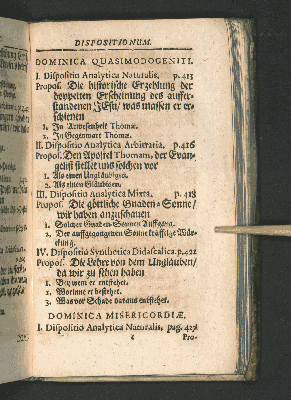 DISPOSITIONUM.
DOMINICA QUASIMODOGENITI.
I. Dispositio Analytica Naturalis. p. 413
Propos. Die historische Erzehlung der
doppelten Erscheinung des auffer-
standenen JEsu/ was massen er er-
schienen
1. In Abwesenheit Thomæ.
2. In Gegenwart Thomæ.
II. Dispositio Analytica Arbitraria. p. 416
Propos. Den Apostel Thomam, der Evan-
gelist stellet uns solchen vor
1. Als einen Ungläubigen.
2. Als einen Gläubigen.
III. Dispositio Analytica Mixta. p. 418
Propos. Die göttliche Gnaden-Sonne/
wir haben anzuschauen
1. Solcher Gnaden-Sonnen Auffgang.
2. Der auffgegangenen Sonne kräfftige Wür-
ckung.
IV. Dispositio Synthetica Didascalica. p. 422
Propos. Die Lehre von dem Unglauben/
da wir zu sehen haben
1. Bey wem er entstehet.
2. Worinne er bestehet.
3. Was vor Schade daraus entstehet.
DOMINICA MISERICORDIÆ.
I. Dispositio Analytica Naturalis, pag. 427
c Pro-